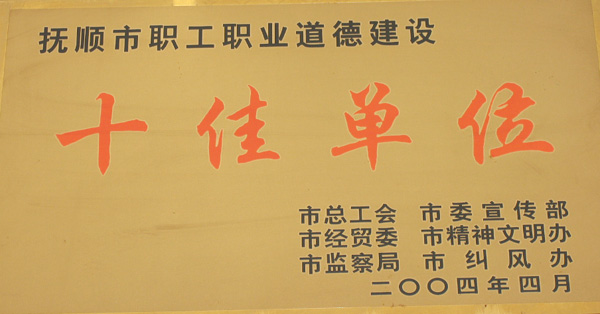 抚顺市职工职业道德建设
十佳单位
市总工会 市委宣传部
市经贸委 市精神文明办
市监察局 市纠风办
二〇〇四年四月